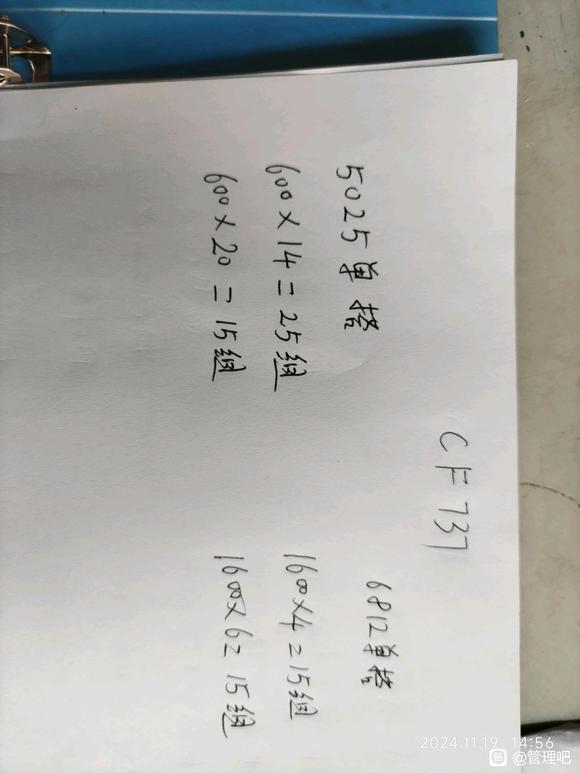 CF737
5025单搭
600×14=25组
600×20=15组
6812单搭
1600×4=15组
1600×6=15组
2024.11.19 14:56
贴 @管理吧